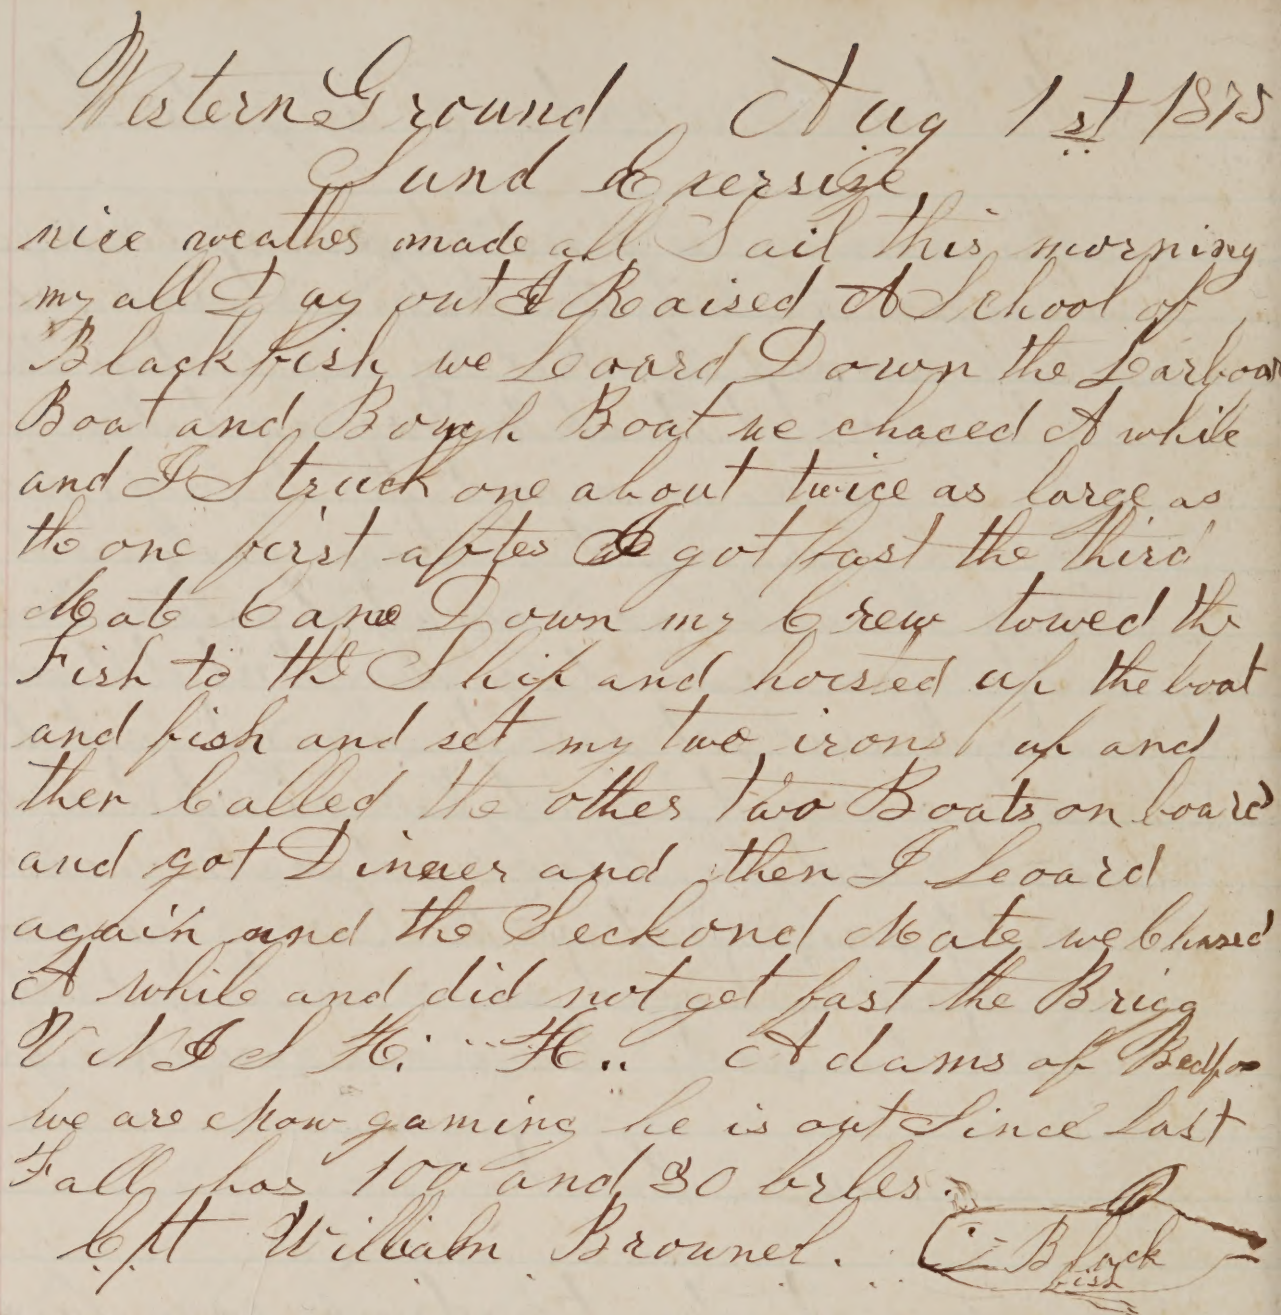 Western Ground Aug 1st 1875
Sund Exersize
nice weather made all Sail this morning
my all Day out I Raised A School of
Black fish we Loard Down the Larboar
Boat and Bough Boat we chaced A while
and I Struck one about twice as large as
the one first after I got fast the third
Mate Came Down my Crew towed the
Fish to the Ship and hoised up the boat
and fish and set my two irons up and
then Called the other two Boats on board
and got Dinner and then I Leoard
again and the Seckond Mate we Chased
A while and did not get fast the Brigg
H. H.. Adams of Bedfo
we are now gaming he is out Since Last
Fall has 100 and 30 brles.
Cpt William Brownel.
Black
fish